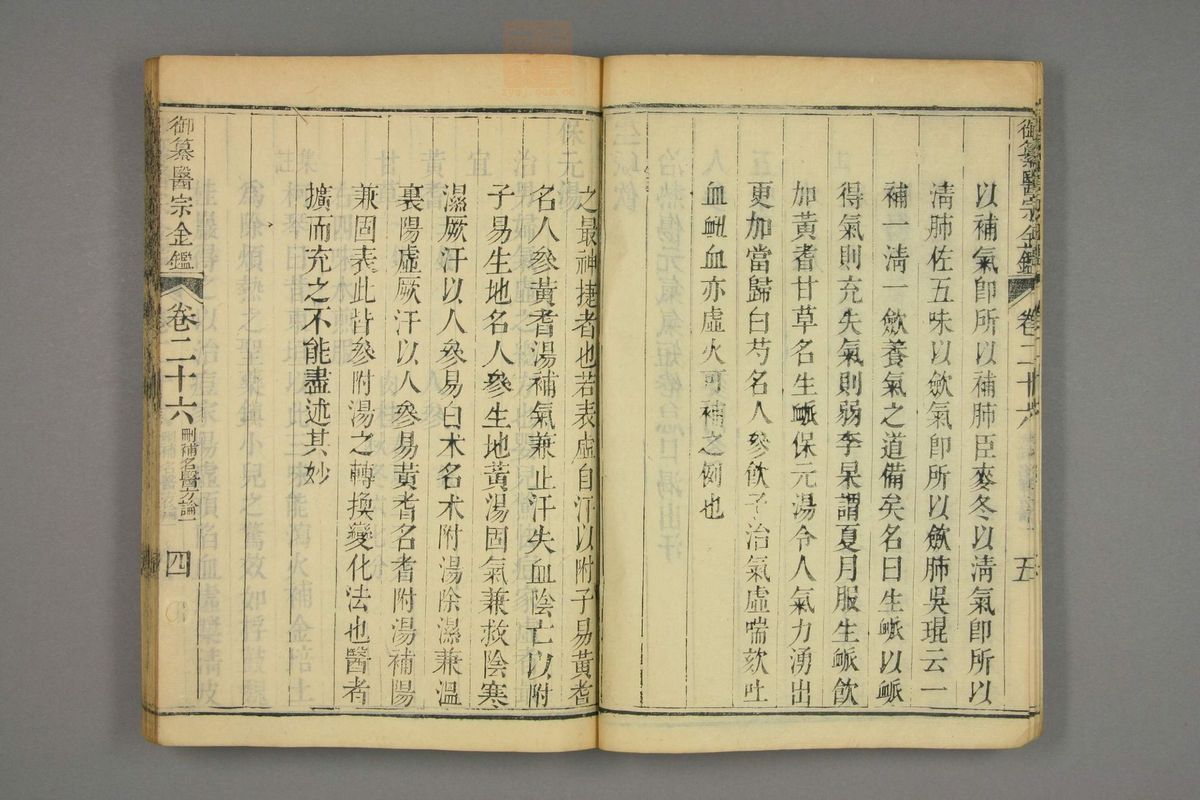 御纂醫宗金鑑 卷二十六 五
以補氣卽所以補肺臣麥冬以淸氣卽所以
淸肺佐五味以斂氣卽所以斂肺吳琨云一
補一淸一斂養氣之道備矣名曰生脈以脈
得氣則充失氣則弱李杲謂夏月服生脈飮
加黃耆甘草名生脈保元湯令人氣力湧出
更加當歸白芍名人參飮子治氣虛喘欬吐
血衂血亦虛火可補之例也
之最神捷者也若表虛自汗以附子易黃耆
名人參黃耆湯補氣兼止汗失血陰亡以附
子易生地名人參生地黃湯固氣兼救陰寒
濕厥汗以人參易白朮名朮附湯除濕兼溫
裏陽虛厥汗以人參易黃耆名耆附湯補陽
兼固表此皆參附湯之轉換變化法也醫者
擴而充之不能盡述其妙
御纂醫宗金鑑 卷二十六 刪補名醫方論一 四